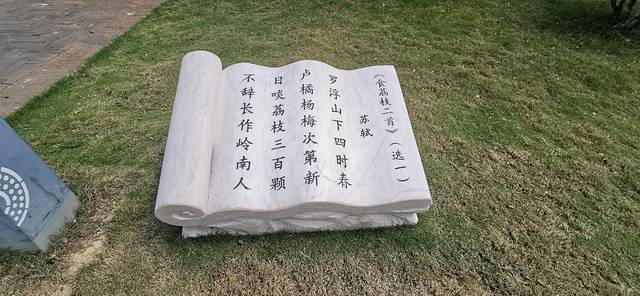 《食荔枝二首》（选一）
苏轼
罗浮山下四时春
卢橘杨梅次第新
日啖荔枝三百颗
不辞长作岭南人